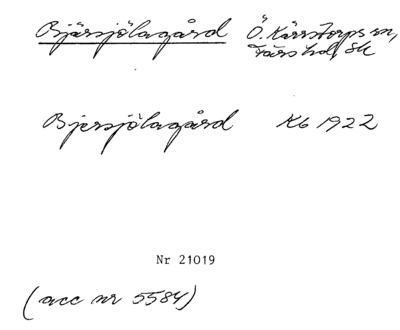 Bjärsjölagård Ö. Kärrstorps sn,
Färs hd, Sk
Bjersjölagård Kb 1922
Nr 21019
(acc nr 5584)